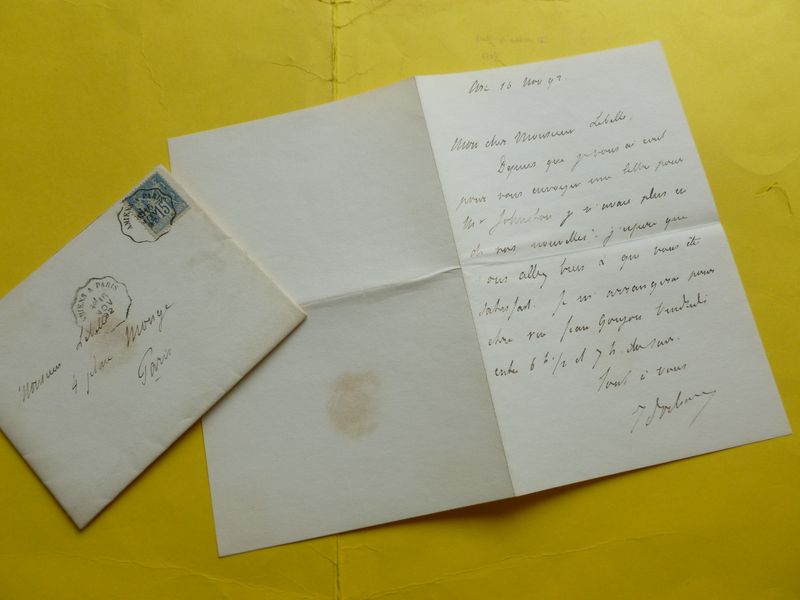 16 Nov 92
Mon cher Monsieur Lebelle,
Depuis que je vous ai écrit
pour vous envoyer une lettre pour
Mr Johnston je n'avais plus eu
de vos nouvelles. j'espère que
vous allez bien & que vous êtes
satisfait. Je m'arrangerai pour
être rue Jean Goujon Vendredi
entre 6 h. 1/2 et 7 h. du soir.
Tout à vous
AMIENS A PARIS
15
AMIENS A PARIS
Monsieur Lebelle
4 place Monge
Paris